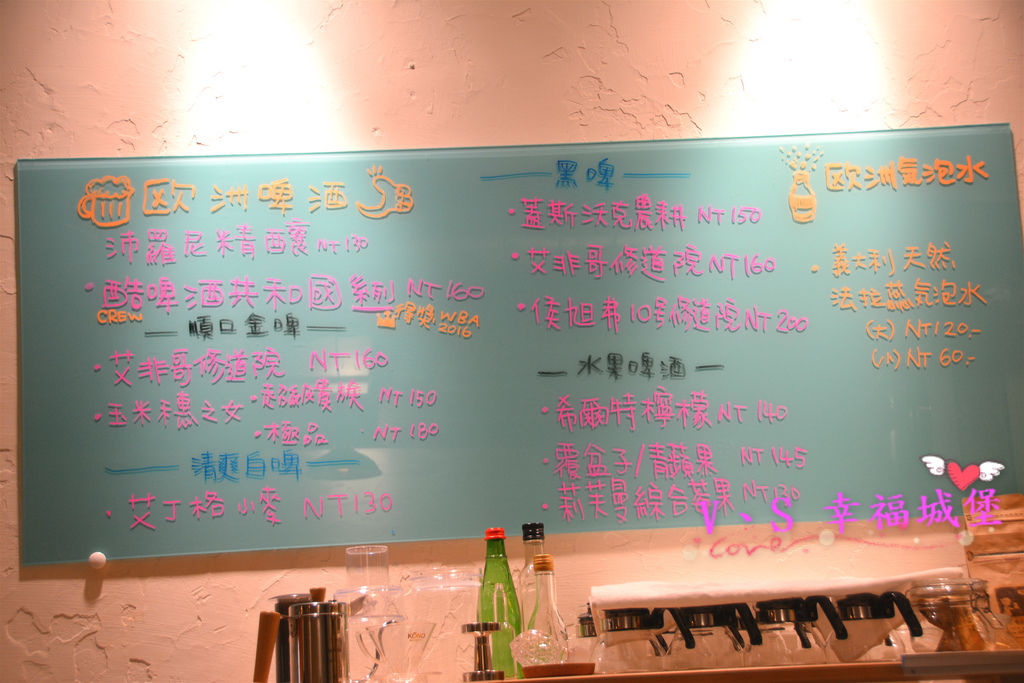 歐洲啤酒
沛羅尼精釀 NT 130
酷啤酒共和國系列 NT 160
CREW
得獎 WBA
2016
順口金啤
艾非哥修道院 NT 160
玉米穗之女
超級貴族 NT 150
極品 NT 180
清爽白啤
艾丁格小麥 NT 130
黑啤
蓋斯沃克農耕 NT 150
艾非哥修道院 NT 160
侯旭弗10號修道院 NT 200
水果啤酒
希爾特檸檬 NT 140
覆盆子/青蘋果 NT 145
莉芙曼綜合莓果 NT 130
歐洲氣泡水
義大利天然
法拉蕊氣泡水
(大) NT 120.-
(小) NT 60.-
V、S 幸福城堡
KŌNO